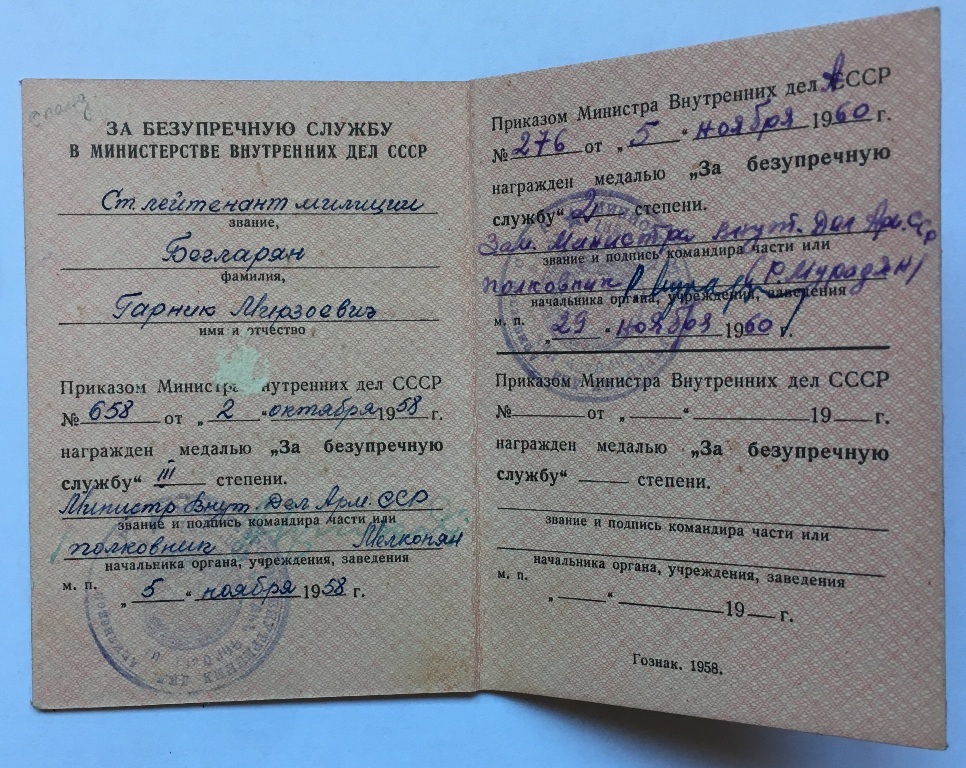 ЗА БЕЗУПРЕЧНУЮ СЛУЖБУ
В МИНИСТЕРСТВЕ ВНУТРЕННИХ ДЕЛ СССР
Ст. лейтенант милиции
звание,
Бегларян
фамилия,
Гарник Мирзоевич
имя и отчество
Приказом Министра Внутренних дел СССР
№ 658 от „ 2 “ октября 1958 г.
награжден медалью „За безупречную
службу“ III степени.
Министр Внут. Дел Арм. ССР
звание и подпись командира части или
полковник Мелконян
начальника органа, учреждения, заведения
м. п.
„ 5 “ ноября 1958 г.
Приказом Министра Внутренних дел АССР
№ 276 от „ 5 “ ноября 1960 г.
награжден медалью „За безупречную
службу“ 2 степени.
Зам. Министра Внут. Дел Арм. ССР
звание и подпись командира части или
полковник (Р. Мурадян)
начальника органа, учреждения, заведения
м. п.
„ 29 “ ноября 1960 г.
Приказом Министра Внутренних дел СССР
№ от „ “ 19 г.
награжден медалью „За безупречную
службу“ степени.
звание и подпись командира части или
начальника органа, учреждения, заведения
м. п.
„ “ 19 г.
Гознак. 1958.